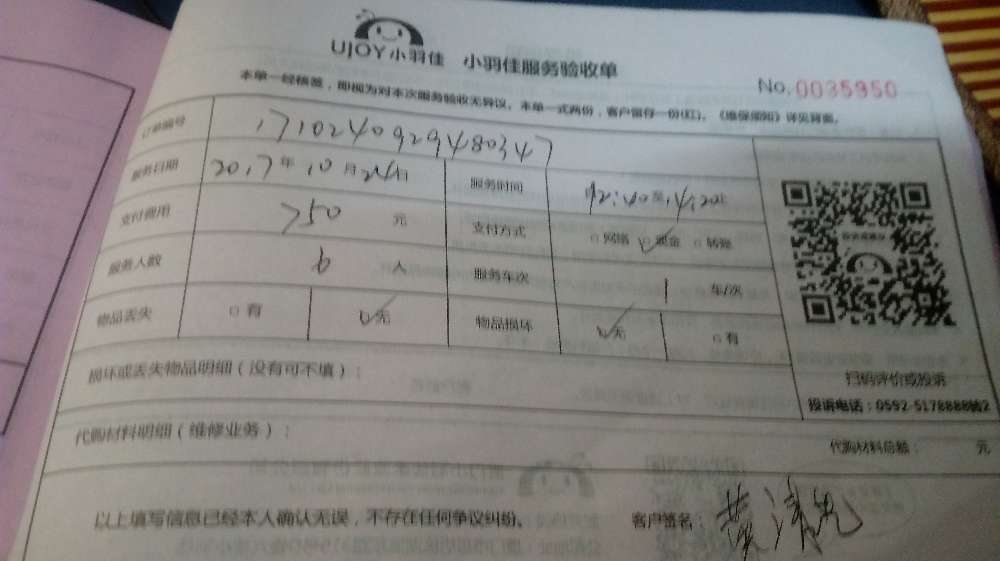 UJOY小羽佳 小羽佳服务验收单
No. 0035950
本单一经核签，即视为对本次服务验收无异议。本单一式两份，客户留存一份(红)。《维保须知》详见背面。
订单编号 1710240929480347
服务日期 2017年10月24日 服务时间 12:40至14:20止
支付费用 750元 支付方式 □网络 □现金 □转账
服务人数 6人 服务车次 1车/次
物品丢失 □有 □无 物品损坏 □无 □有
扫码评价或投诉
损坏或丢失物品明细（没有可不填）：
投诉电话：0592-5178888转2
代购材料明细（维修业务）：
代购材料总额： 元
以上填写信息已经本人确认无误，不存在任何争议纠纷。 客户签名：